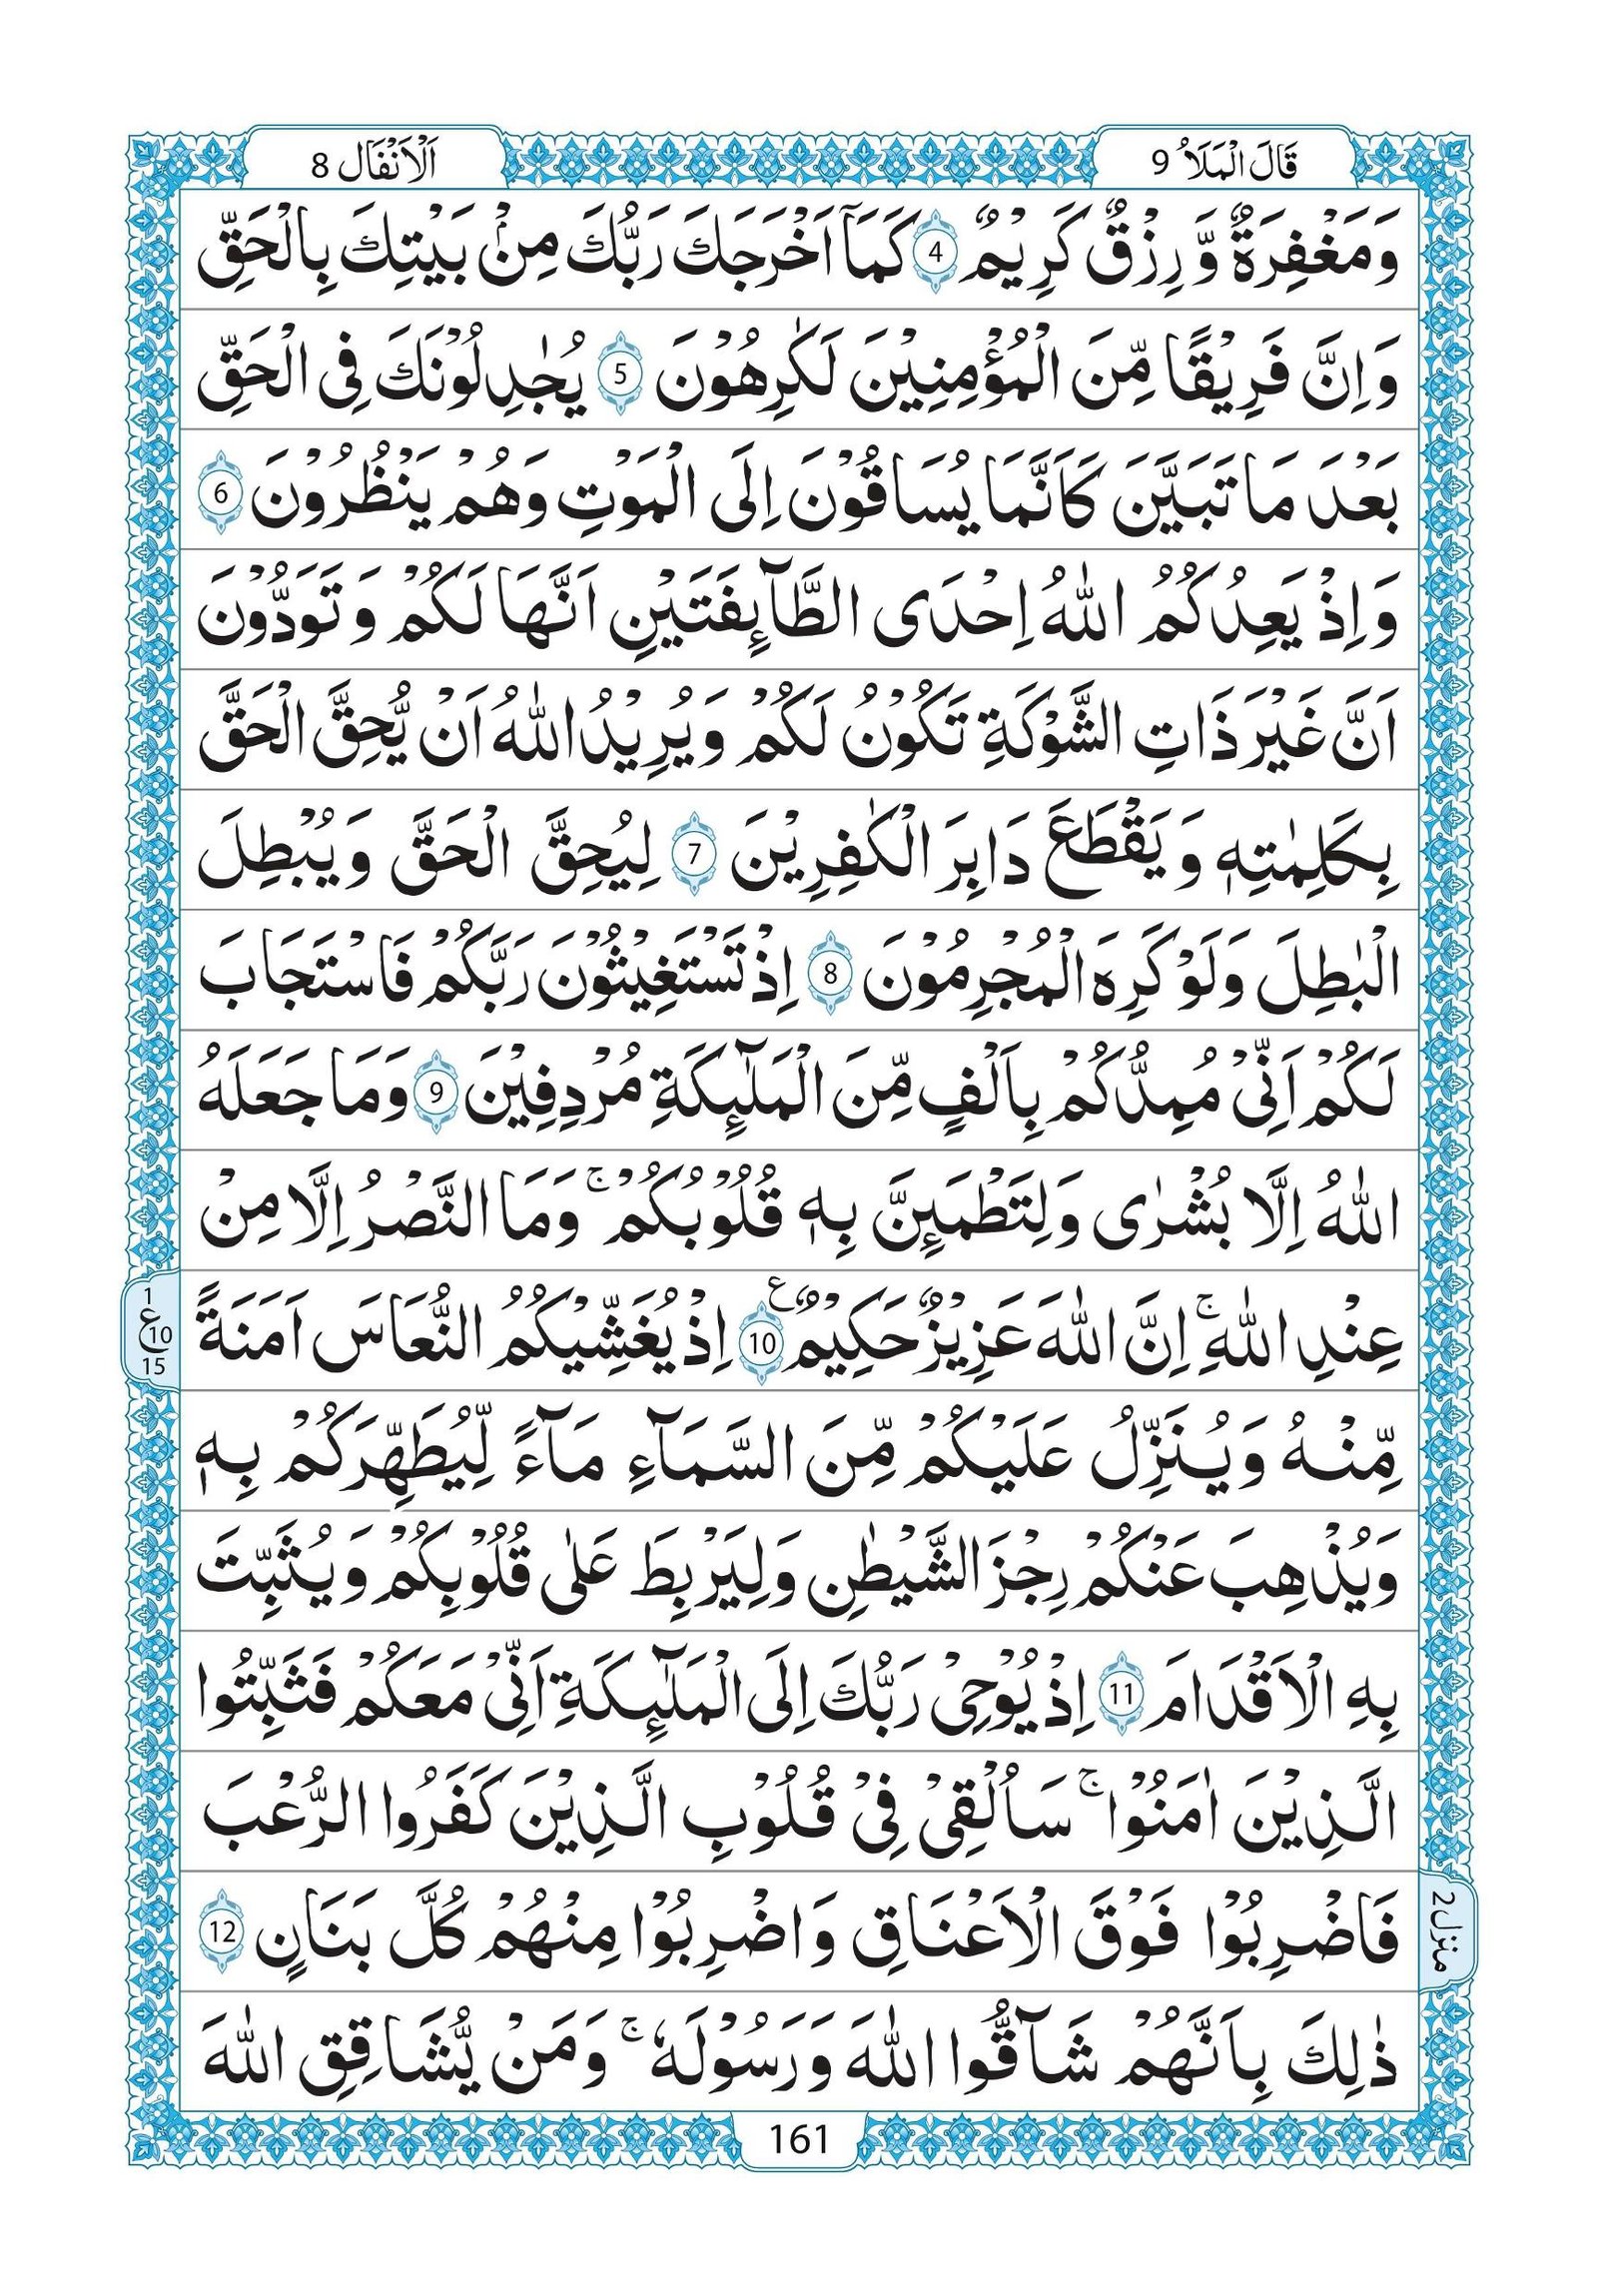 قَالَ الْمَلَاُ 9
اَلْاَنْفَال 8
وَمَغْفِرَةٌ وَّرِزْقٌ كَرِيْمٌ 4 كَمَاۤ اَخْرَجَكَ رَبُّكَ مِنْۢ بَيْتِكَ بِالْحَقِّ
وَاِنَّ فَرِيْقًا مِّنَ الْمُؤْمِنِيْنَ لَكٰرِهُوْنَ 5 يُجٰدِلُوْنَكَ فِى الْحَقِّ
بَعْدَ مَا تَبَيَّنَ كَاَنَّمَا يُسَاقُوْنَ اِلَى الْمَوْتِ وَهُمْ يَنْظُرُوْنَ 6
وَاِذْ يَعِدُكُمُ اللّٰهُ اِحْدَى الطَّآئِفَتَيْنِ اَنَّهَا لَكُمْ وَتَوَدُّوْنَ
اَنَّ غَيْرَ ذَاتِ الشَّوْكَةِ تَكُوْنُ لَكُمْ وَيُرِيْدُ اللّٰهُ اَنْ يُّحِقَّ الْحَقَّ
بِكَلِمٰتِهٖ وَيَقْطَعَ دَابِرَ الْكٰفِرِيْنَ 7 لِيُحِقَّ الْحَقَّ وَيُبْطِلَ
الْبٰطِلَ وَلَوْ كَرِهَ الْمُجْرِمُوْنَ 8 اِذْ تَسْتَغِيْثُوْنَ رَبَّكُمْ فَاسْتَجَابَ
لَكُمْ اَنِّىْ مُمِدُّكُمْ بِاَلْفٍ مِّنَ الْمَلٰٓئِكَةِ مُرْدِفِيْنَ 9 وَمَا جَعَلَهُ
اللّٰهُ اِلَّا بُشْرٰى وَلِتَطْمَئِنَّ بِهٖ قُلُوْبُكُمْ ۚ وَمَا النَّصْرُ اِلَّا مِنْ
عِنْدِ اللّٰهِ ۚ اِنَّ اللّٰهَ عَزِيْزٌ حَكِيْمٌ ع 10 اِذْ يُغَشِّيْكُمُ النُّعَاسَ اَمَنَةً
1
ع 10
15
مِّنْهُ وَيُنَزِّلُ عَلَيْكُمْ مِّنَ السَّمَآءِ مَآءً لِّيُطَهِّرَكُمْ بِهٖ
وَيُذْهِبَ عَنْكُمْ رِجْزَ الشَّيْطٰنِ وَلِيَرْبِطَ عَلٰى قُلُوْبِكُمْ وَيُثَبِّتَ
بِهِ الْاَقْدَامَ 11 اِذْ يُوْحِىْ رَبُّكَ اِلَى الْمَلٰٓئِكَةِ اَنِّىْ مَعَكُمْ فَثَبِّتُوا
الَّذِيْنَ اٰمَنُوْا ۚ سَاُلْقِىْ فِىْ قُلُوْبِ الَّذِيْنَ كَفَرُوا الرُّعْبَ
فَاضْرِبُوْا فَوْقَ الْاَعْنَاقِ وَاضْرِبُوْا مِنْهُمْ كُلَّ بَنَانٍ 12
منزل 2
ذٰلِكَ بِاَنَّهُمْ شَآقُّوا اللّٰهَ وَرَسُوْلَهٗ ۚ وَمَنْ يُّشَاقِقِ اللّٰهَ
161